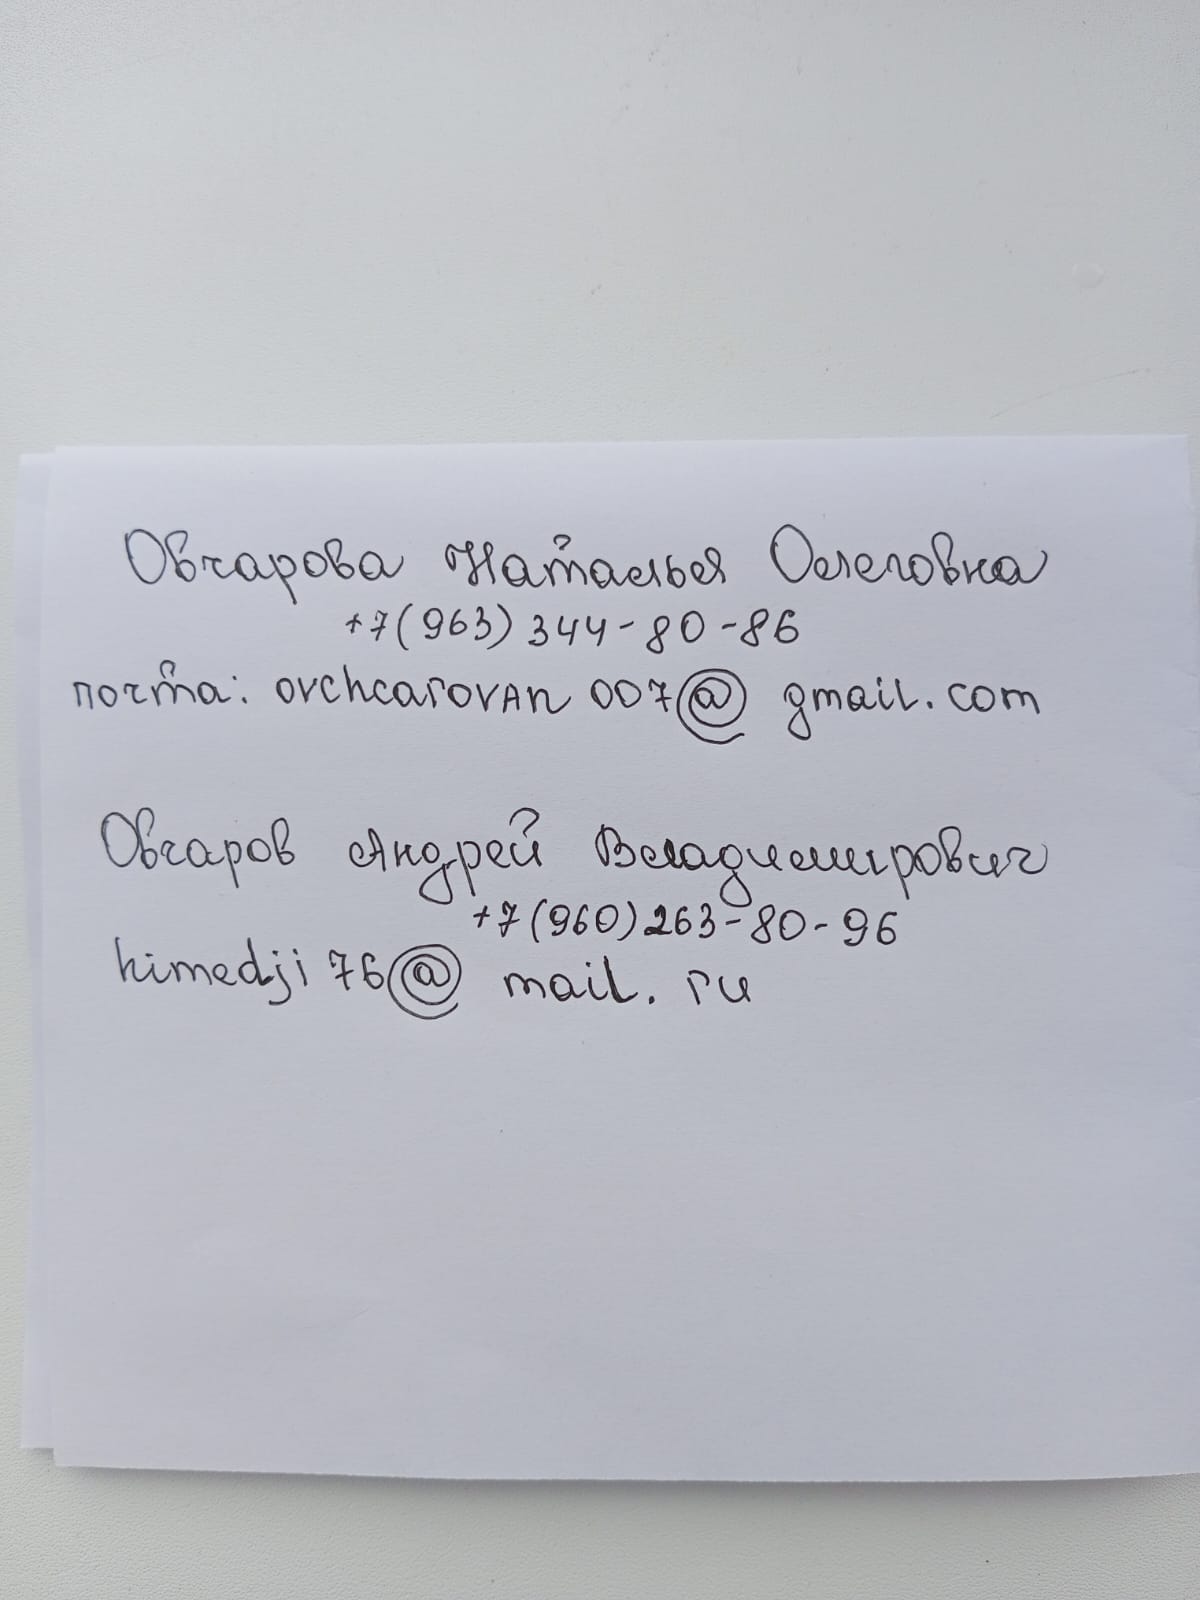 Овчарова Наталья Олеговна
+7(963) 344-80-86
почта: ovchcarovan007@gmail.com
Овчаров Андрей Владимирович
+7(960)263-80-96
himedji76@mail.ru